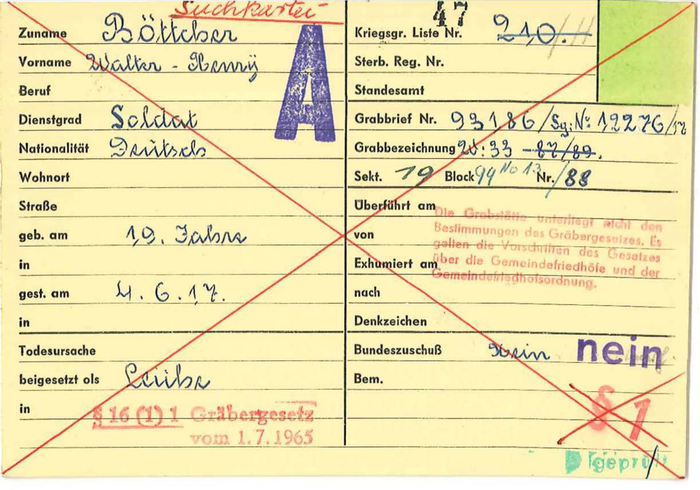 Suchkartei
Zuname Böttcher
Vorname Walter - Henry
Beruf
Dienstgrad Soldat
Nationalität Deutsch
Wohnort
Straße
geb. am 19. Jahre
in
gest. am 4. 6. 17.
in
Todesursache
beigesetzt als Leiche
in
§ 16 (1) 1 Gräbergesetz
vom 1.7.1965
A
47
Kriegsgr. Liste Nr. 210.
Sterb. Reg. Nr.
Standesamt
Grabbrief Nr. 93186/Sg. No 12276/
Grabbezeichnung 20:33 - 87/89.
Sekt. 19 Block 94 No 13 Nr. /88
Überführt am
von
Exhumiert am
nach
Die Grabstätte unterliegt nicht den
Bestimmungen des Gräbergesetzes. Es
gelten die Vorschriften des Gesetzes
über die Gemeindefriedhöfe und der
Gemeindefriedhofsordnung.
Denkzeichen
Bundeszuschuß Nein nein
Bem.
§ 1
geprüft